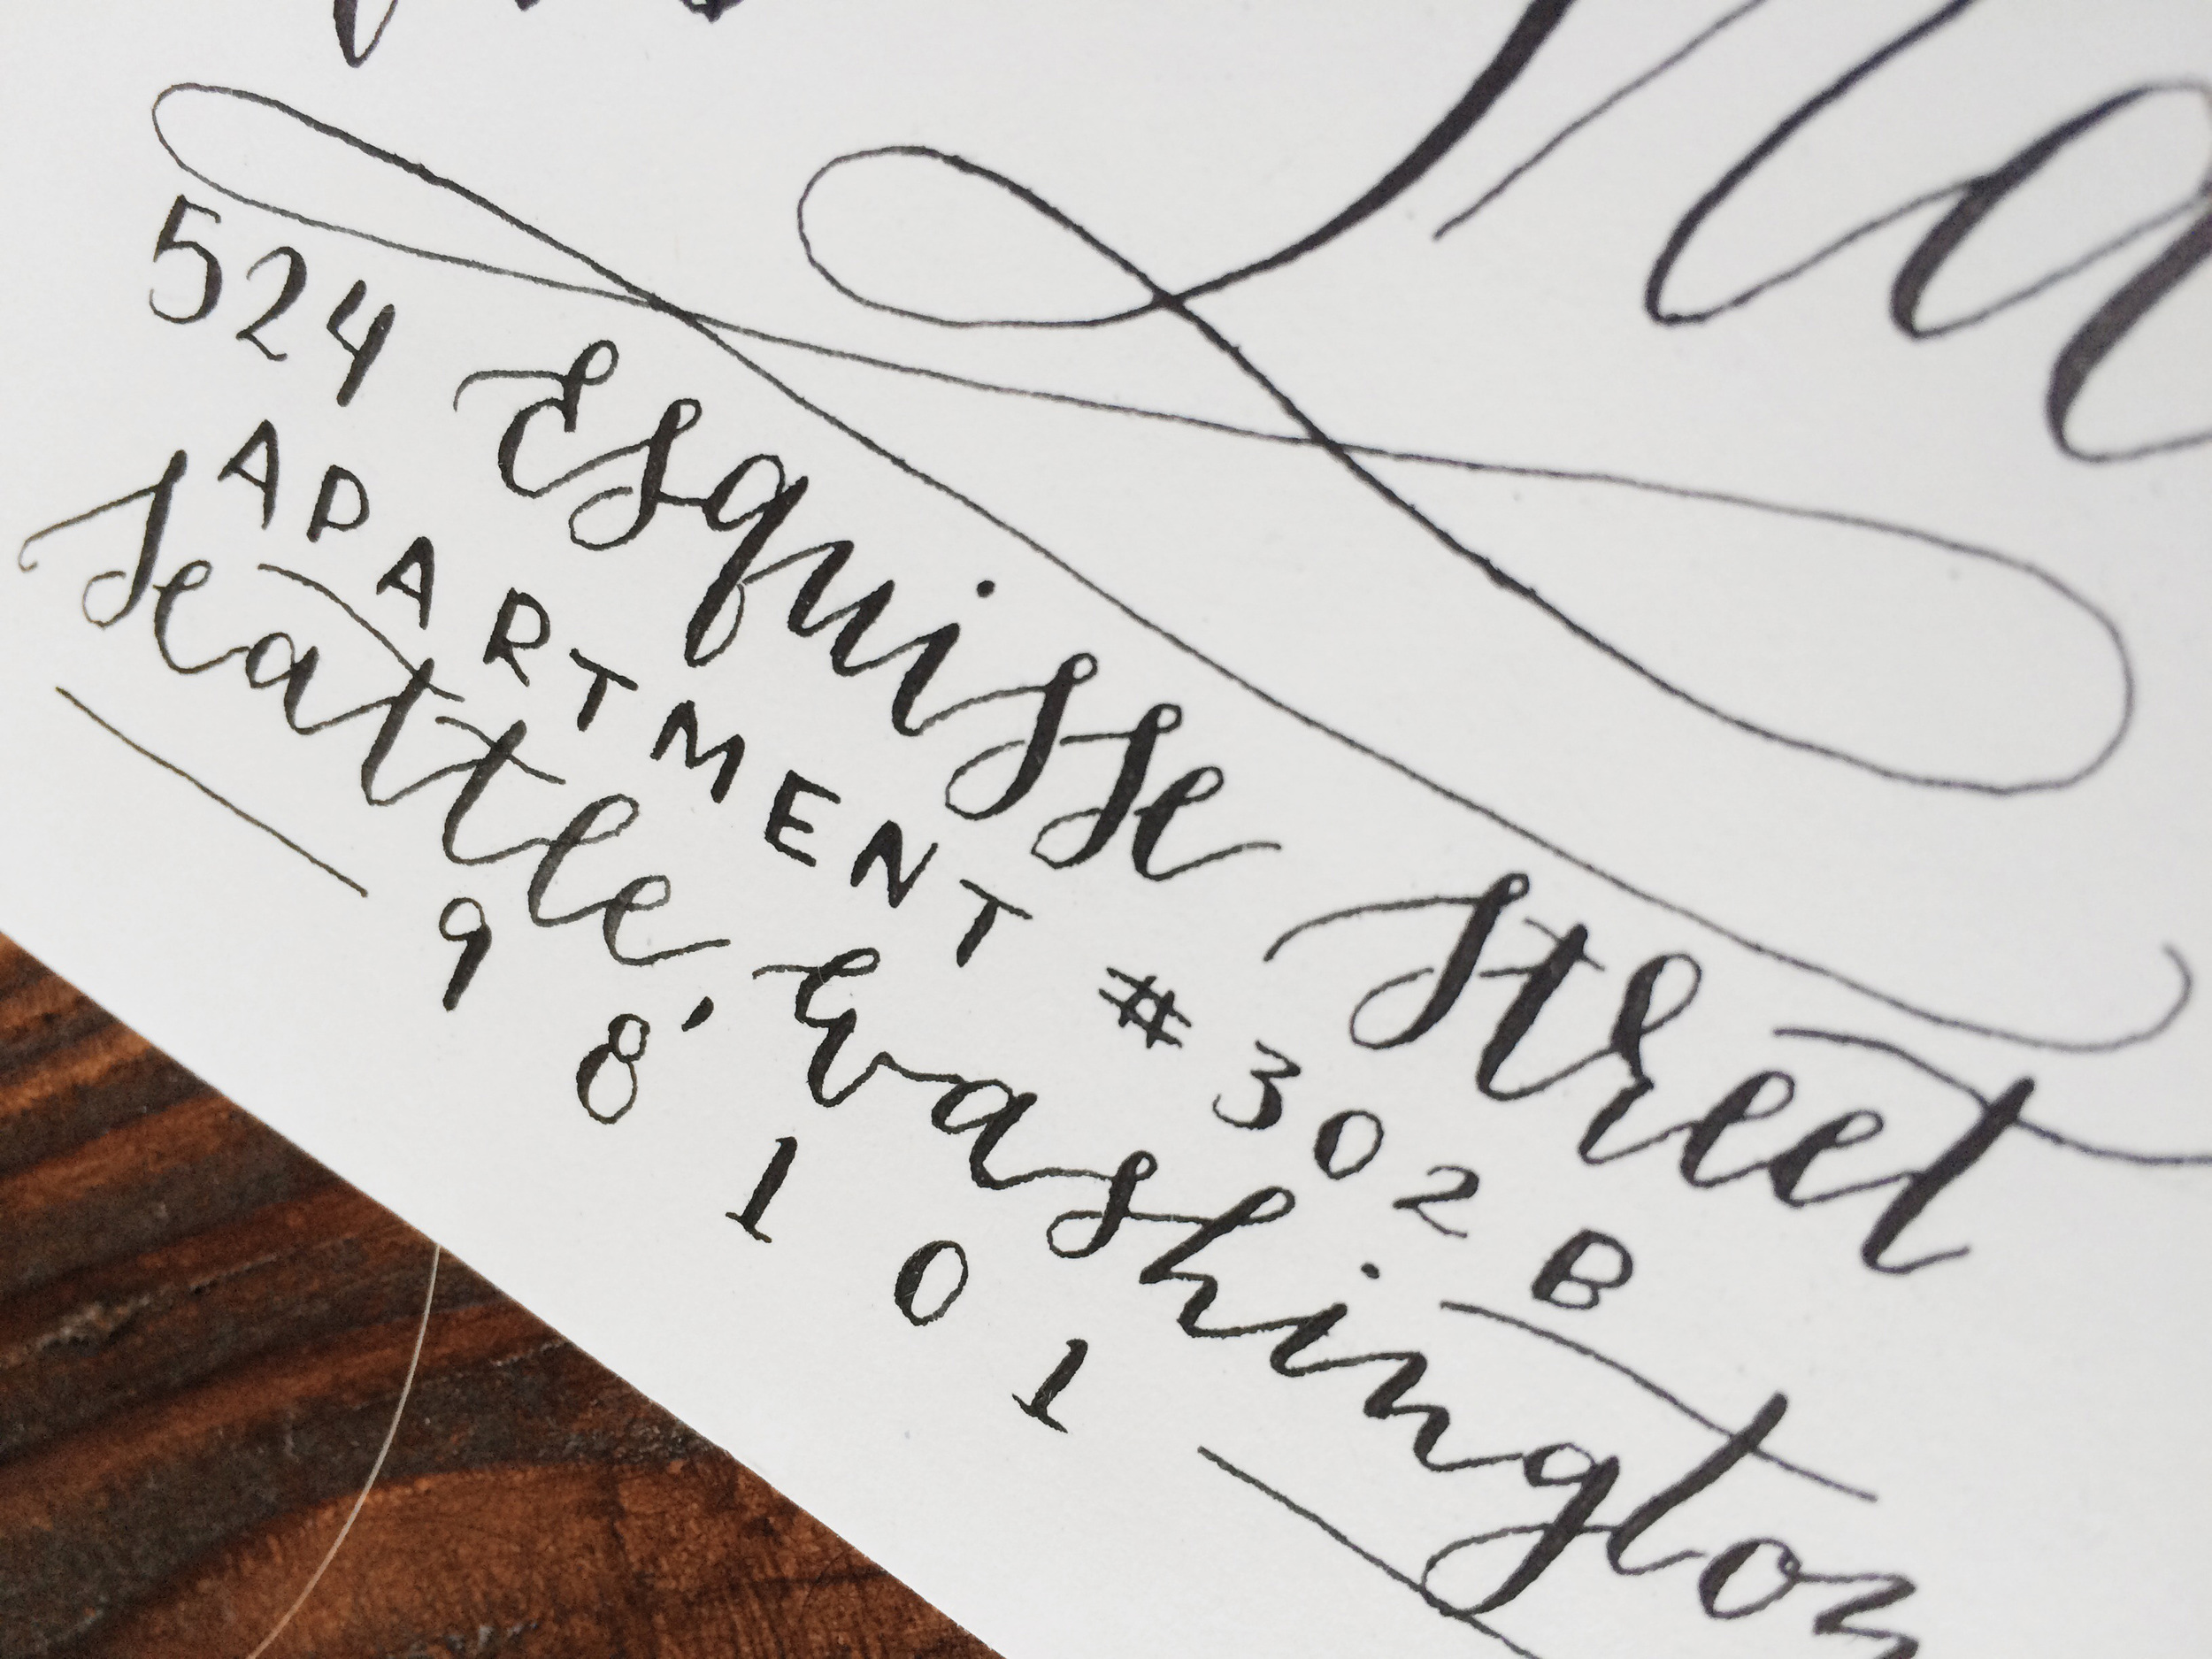 524 Esquisse Street
APARTMENT #302B
Seattle, Washington
98101